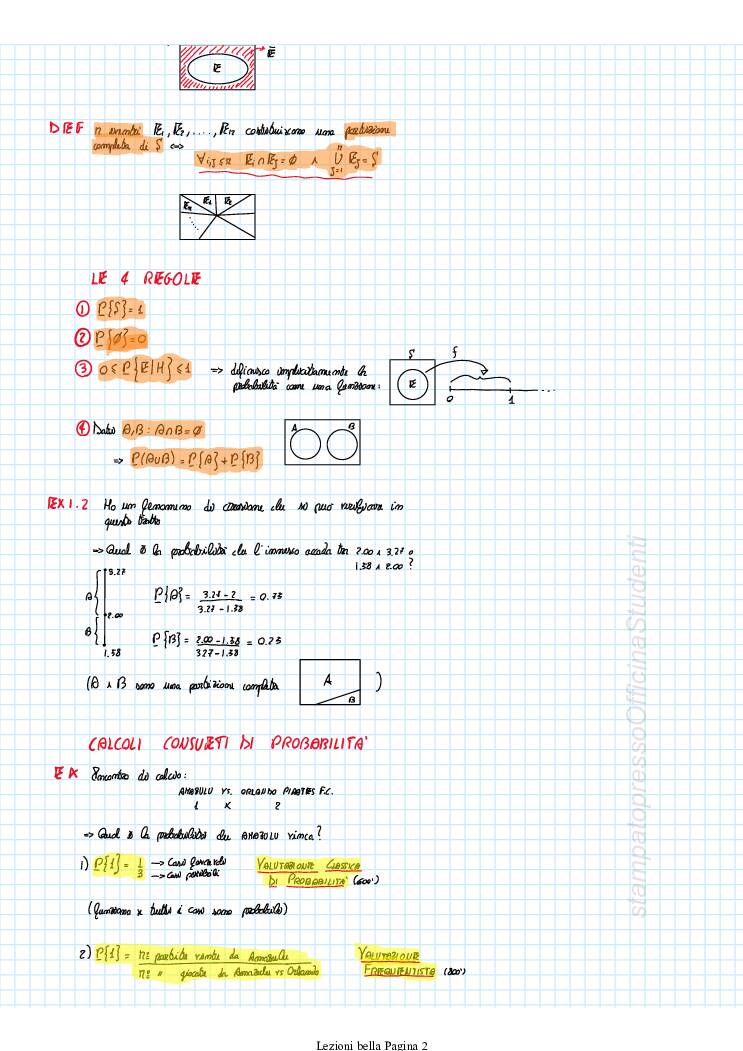 Ē
E
DEF n eventi E1, E2, ...., En costituiscono una partizione
completa di S <=>
∀i,j ≤ n Ei ∩ Ej = ∅ ∧ ⋃ⁿj=1 Ej = S
En E1 E2
LE 4 REGOLE
① P{S} = 1
② P{∅} = 0
③ 0 ≤ P{E|H} ≤ 1 => definisco implicitamente la
probabilità come una funzione:
S f
E
0 1
④ Dati A,B : A∩B = ∅
=> P(A∪B) = P{A} + P{B}
A B
EX 1.2 Ho un fenomeno di che si può verificare in
questo tratto
=> Qual è la probabilità che l'innesco accada tra 2.00 ∧ 3.27 o
1.38 ∧ 2.00 ?
3.27
A
2.00
B
1.38
P{A} = 3.27 - 2 / 3.27 - 1.38 = 0.75
P{B} = 2.00 - 1.38 / 3.27 - 1.38 = 0.25
(A ∧ B sono una partizione completa )
A
B
CALCOLI CONSUETI DI PROBABILITA'
EX Encontro di calcio:
AMAZULU VS. ORLANDO PIRATES F.C.
1 X 2
=> Qual è la probabilità che AMAZULU vinca?
1) P{1} = 1/3 → casi favorevoli
→ casi possibili
VALUTAZIONE CLASSICA
DI PROBABILITA' (600')
(funziona se tutti i casi sono probabili)
2) P{1} = n° partite vinte da Amazulu
n° " giocate da Amazulu vs Orlando
VALUTAZIONE
FREQUENTISTA (800')
stampatopressoOfficinaStudenti
Lezioni bella Pagina 2